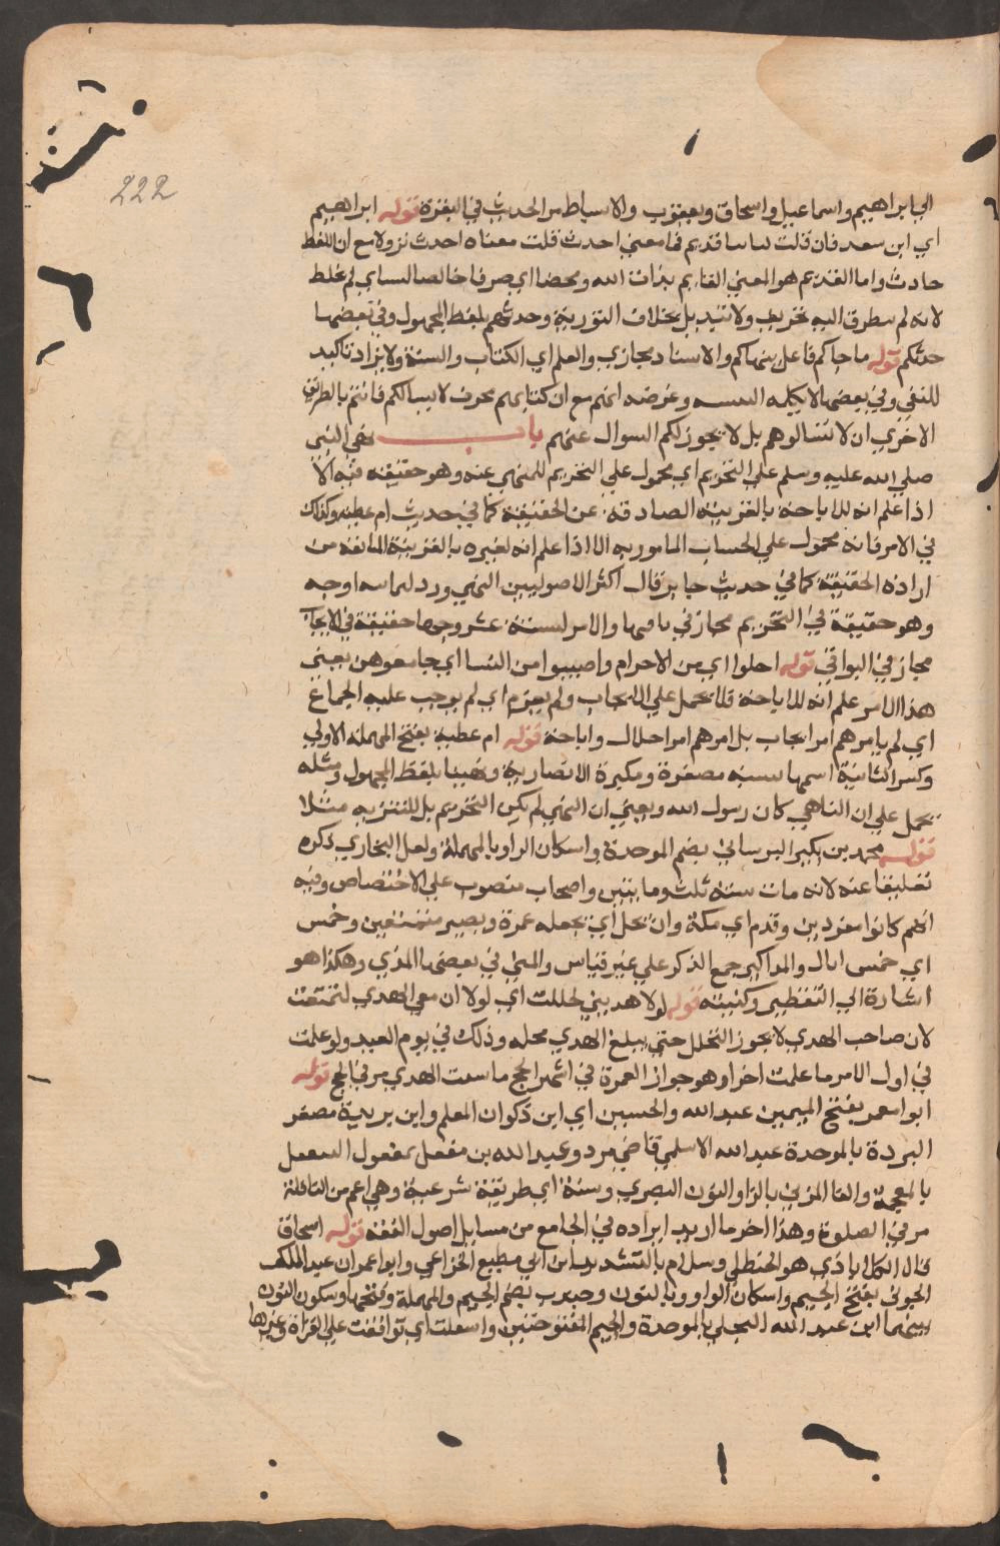 222
الى ابراهيم واسماعيل واسحاق ويعقوب والاسباط من الحديث في البقرة قوله ابراهيم
اي ابن سعد فان قلت كتابنا قديم فما معني احدث قلت معناه احدث نزولا مع ان اللفظ
حادث وانما القديم هو المعني القايم بذات الله ومحضا اي صرفا خالصا لم يخلط
لانه لم يتطرق اليه تحريف ولا تبديل بخلاف التورية وحدثهم بلفظ المجهول وفي بعضها
حدثكم قوله ما جاكم فاعل ينهاكم والاسناد مجازي والعلم اي الكتاب والسنة ولا يزاد تاكيد
للنفي وفي بعضها الا بكلمة التنبيه وغرضه انهم مع ان كتابهم محرف لا يسالكم فانتم بالطريق
الاخري ان لا تسالوهم بل لا يجوز لكم السوال عنهم باب نهي النبي
صلي الله عليه وسلم علي التحريم اي محمول علي التحريم للمنهي عنه وهو حقيقة فيه الا
اذا علم انه للاباحة بالقرينة الصادقة عن الحقيقة كما في حديث ام عطية وكذلك
في الامر فانه محمول علي الحساب المامور به الا اذا علم انه لغيره بالقرينة المانعة من
ارادة الحقيقة كما في حديث جابر قال اكثر الاصوليين النهي ورد لثمانية اوجه
وهو حقيقة في التحريم مجاز في باقيها والامر لستة عشر وجها حقيقة في الايجاب
مجاز في البواقي قوله احلوا اي من الاحرام واصيبوا من النسا اي جامعوهن يعني
هذا الامر علم انه للاباحة فلا يحمل علي الايجاب ولم يعزم اي لم يوجب عليهم الجماع
اي لم يامرهم امر ايجاب بل امرهم امر احلال واباحة قوله ام عطية بفتح المهملة الاولي
وكسر الثانية اسمها نسيبة مصغرة ومكبرة الانصارية ونهينا بلفظ المجهول ومثله
يحمل علي ان الناهي كان رسول الله ويعني ان النهي لم يكن التحريم بل للتنزيه مثلا
قوله محمد بن بكير البرساني بضم الموحدة واسكان الرا وبالمهملة ولعل البخاري ذكره
تعليقا عنه لانه مات سنة ثلث ومايتين واصحاب منصوب علي الاختصاص وفيه
انهم كانوا مفردين وقدم اي مكة وان نحل اي نجعله عمرة ونصير متمتعين وخمس
اي خمس ليال والمذاكير جمع الذكر علي غير قياس والمني في بعضها المذي وهكذا هو
اشارة الي التقطير وكيفيته قوله لولا هديي لحللت اي لولا ان معي الهدي لتمتعت
لان صاحب الهدي لا يجوز التحلل حتي يبلغ الهدي محله وذلك في يوم العيد ولو علمت
في اول الامر ما علمت اخرا وهو جواز العمرة في اشهر الحج ما سقت الهدي مر في الحج قوله
ابو معمر بفتح الميمين عبد الله والحسين اي ابن ذكوان المعلم وابن بريدة مصغر
البردة بالموحدة عبد الله الاسلمي قاضي مرو وعبد الله بن مغفل بمفعول التفعيل
بالمعجمة والفا المزني بالزا والنون البصري وسنة اي طريقة شرعية وهي اعم من النافلة
مر في الصلوة وهذا اخر ما اريد ايراده في الجامع من مسايل اصول الفقه قوله اسحاق
قال الكلاباذي هو الحنظلي وسلام بالتشديد ابن ابي مطيع الخزاعي وابو عمران عبد الملك
الجوني بفتح الجيم واسكان الواو وبالنون وجندب بضم الجيم والمهملة وفتحها وسكون النون
بينهما ابن عبد الله البجلي بالموحدة والجيم المفتوحتين وايتلفت اي توافقت علي القراة وغيرها